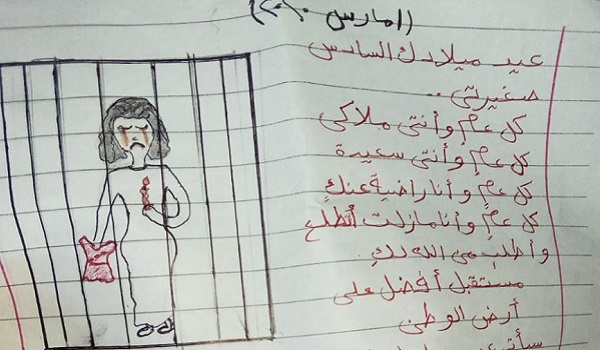 عيد ميلادك السادس
صغيرتي ..
كل عام وأنتي ملاكي
كل عامٍ وأنتي سعيدة
كل عامٍ وأنا راضية عنكِ
كل عامٍ وأنا مازلت أتطلع
وأطلب من الله لكِ
مستقبل أفضل على
أرض الوطن